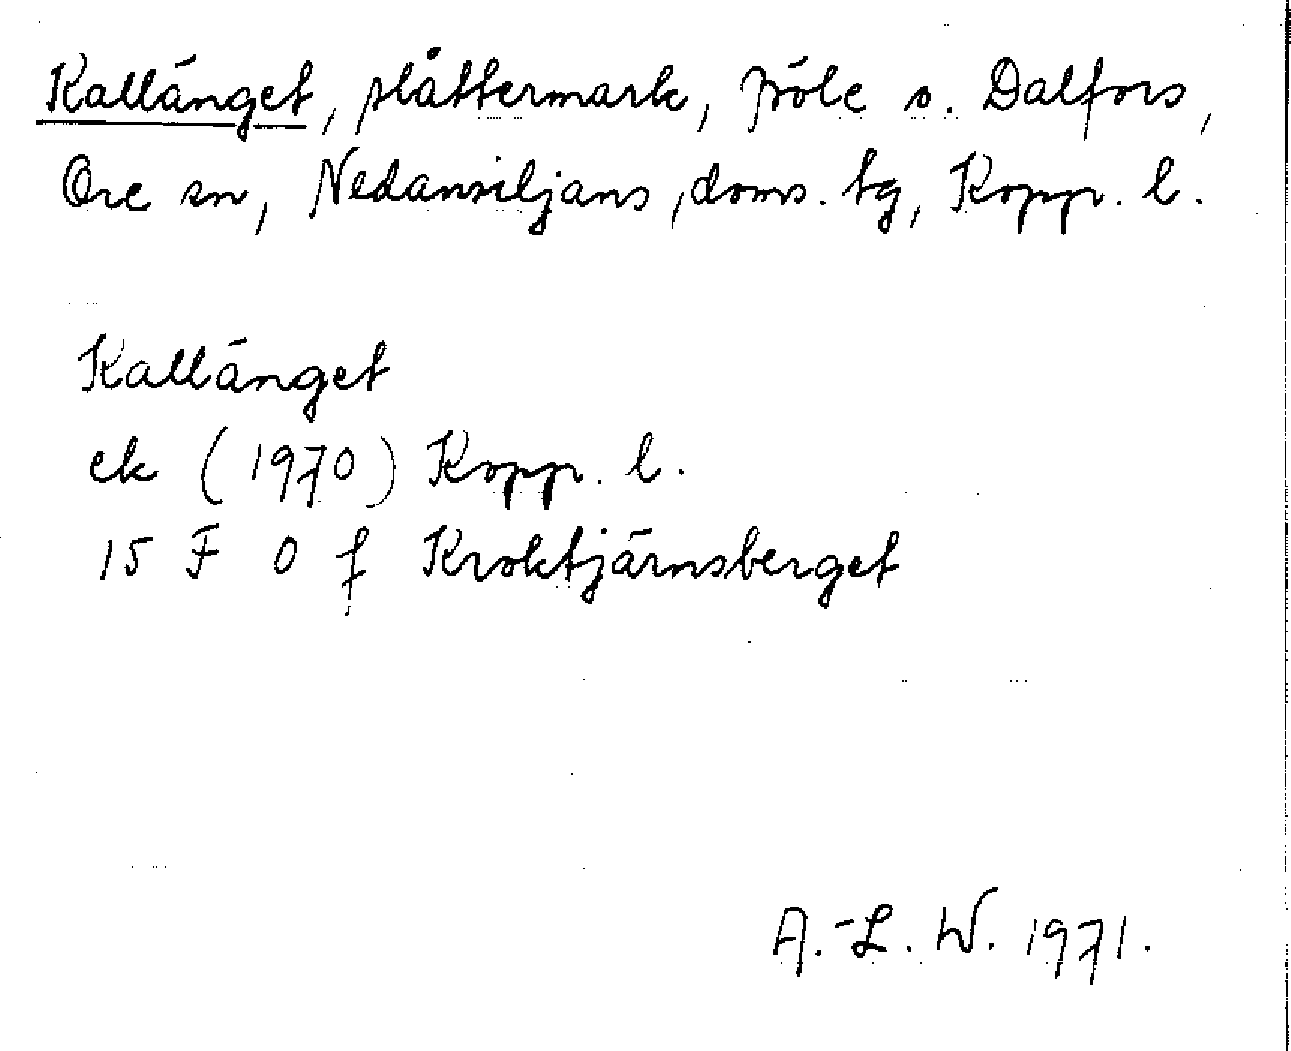 Kallänget, slåttermark, fröle s. Dalfors,
Ore sn, Nedansiljans, doms. tg, Kopp. l.
Kallänget
ek (1970) Kopp. l.
15 F 0 f Kroktjärnsberget
A.-L. W. 1971.